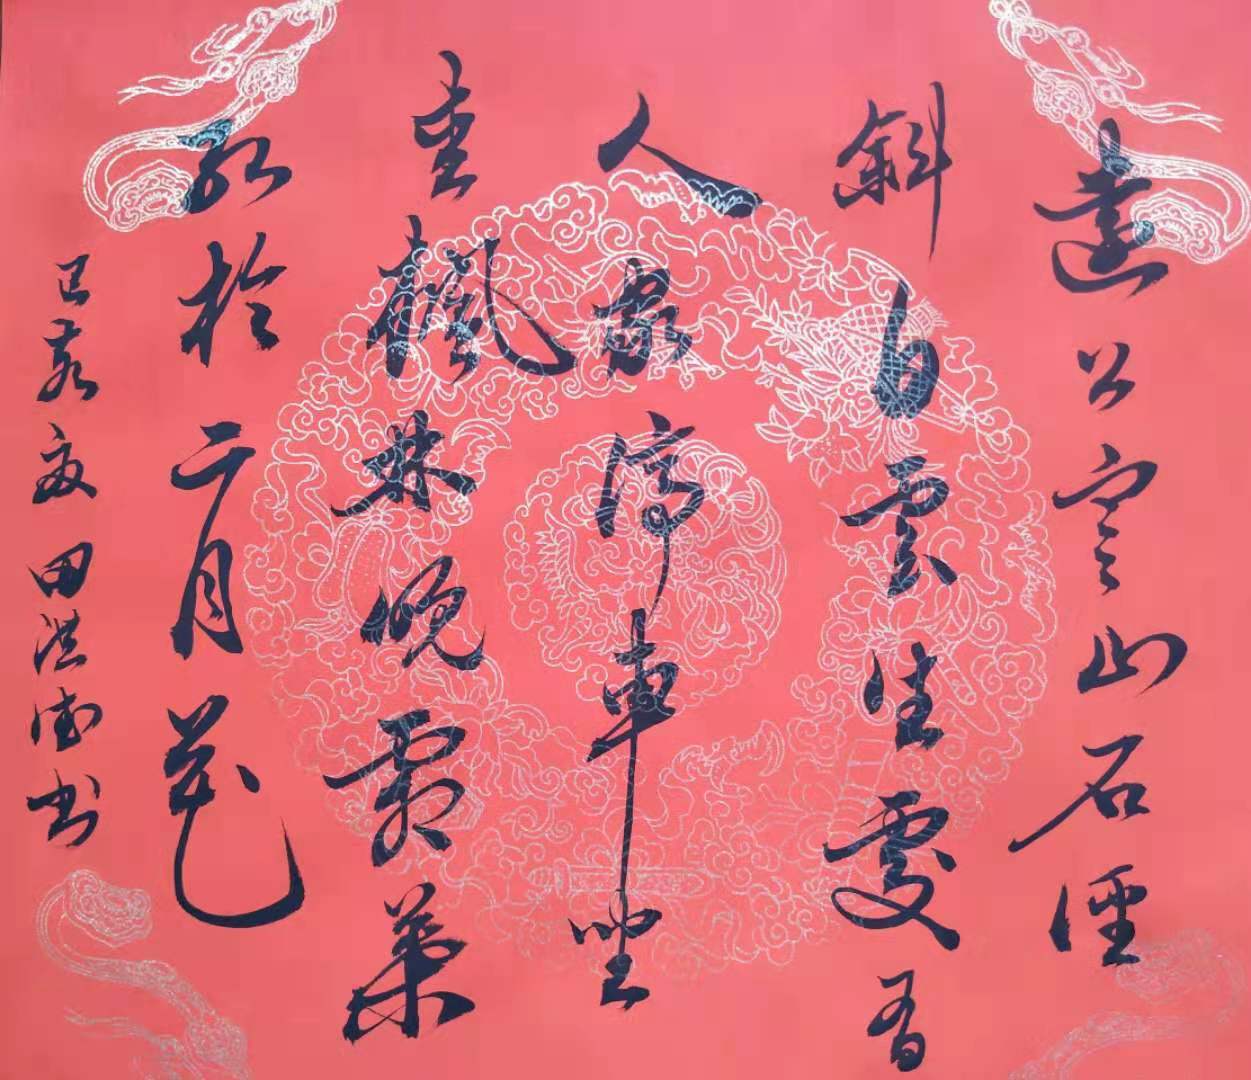 遠上寒山石徑
斜白雲生處有
人家停車坐
愛楓林晚霜葉
紅於二月花
己亥夏田洪德書